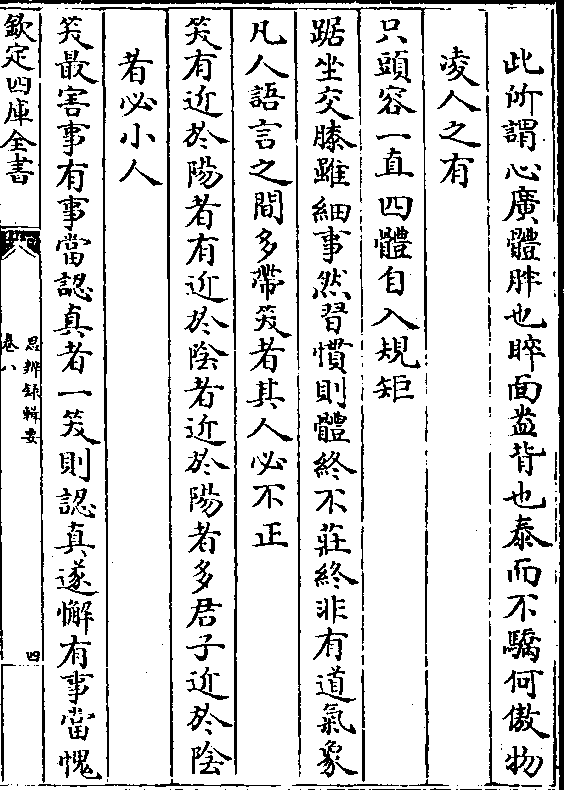 此所謂心廣體胖也睟面盎背也泰而不驕何傲物
凌人之有
只頭容一直四體自入規矩
踞坐交膝雖細事然習慣則體終不莊終非有道氣象
凡人語言之間多帶笑者其人必不正
笑有近於陽者有近於陰者近於陽者多君子近於陰
者必小人
笑最害事有事當認真者一笑則認真遂懈有事當愧
欽定四庫全書
思辨録輯要
卷八
四